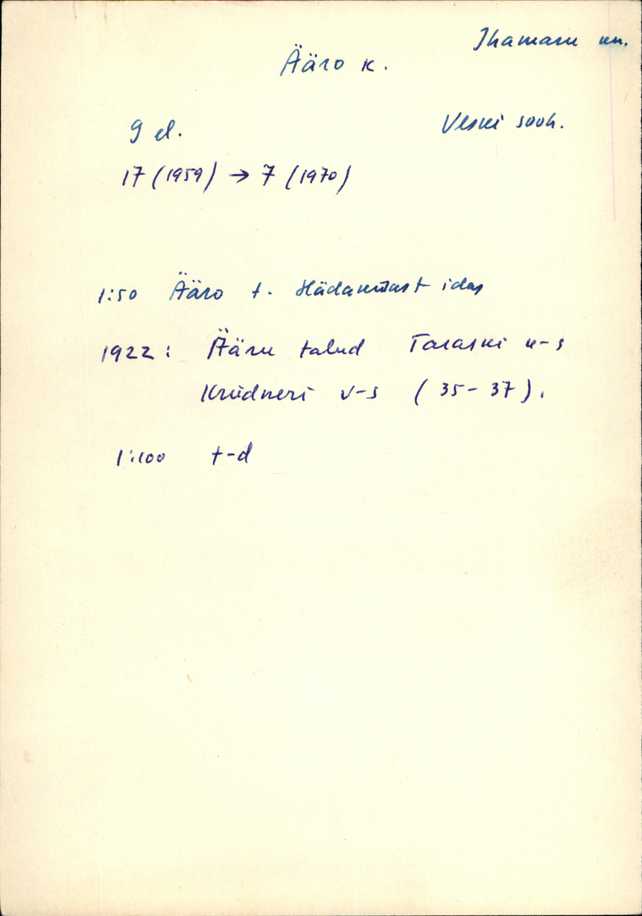 Ihamaru kn.
Ääro k.
9 el.
Veski sovh.
17 (1959) → 7 (1970)
1:50 Ääro t. Hädamäast idas
1922: Ääru talud Taraski k-s
Krüdneri v-s (35-37).
1:100 t-d